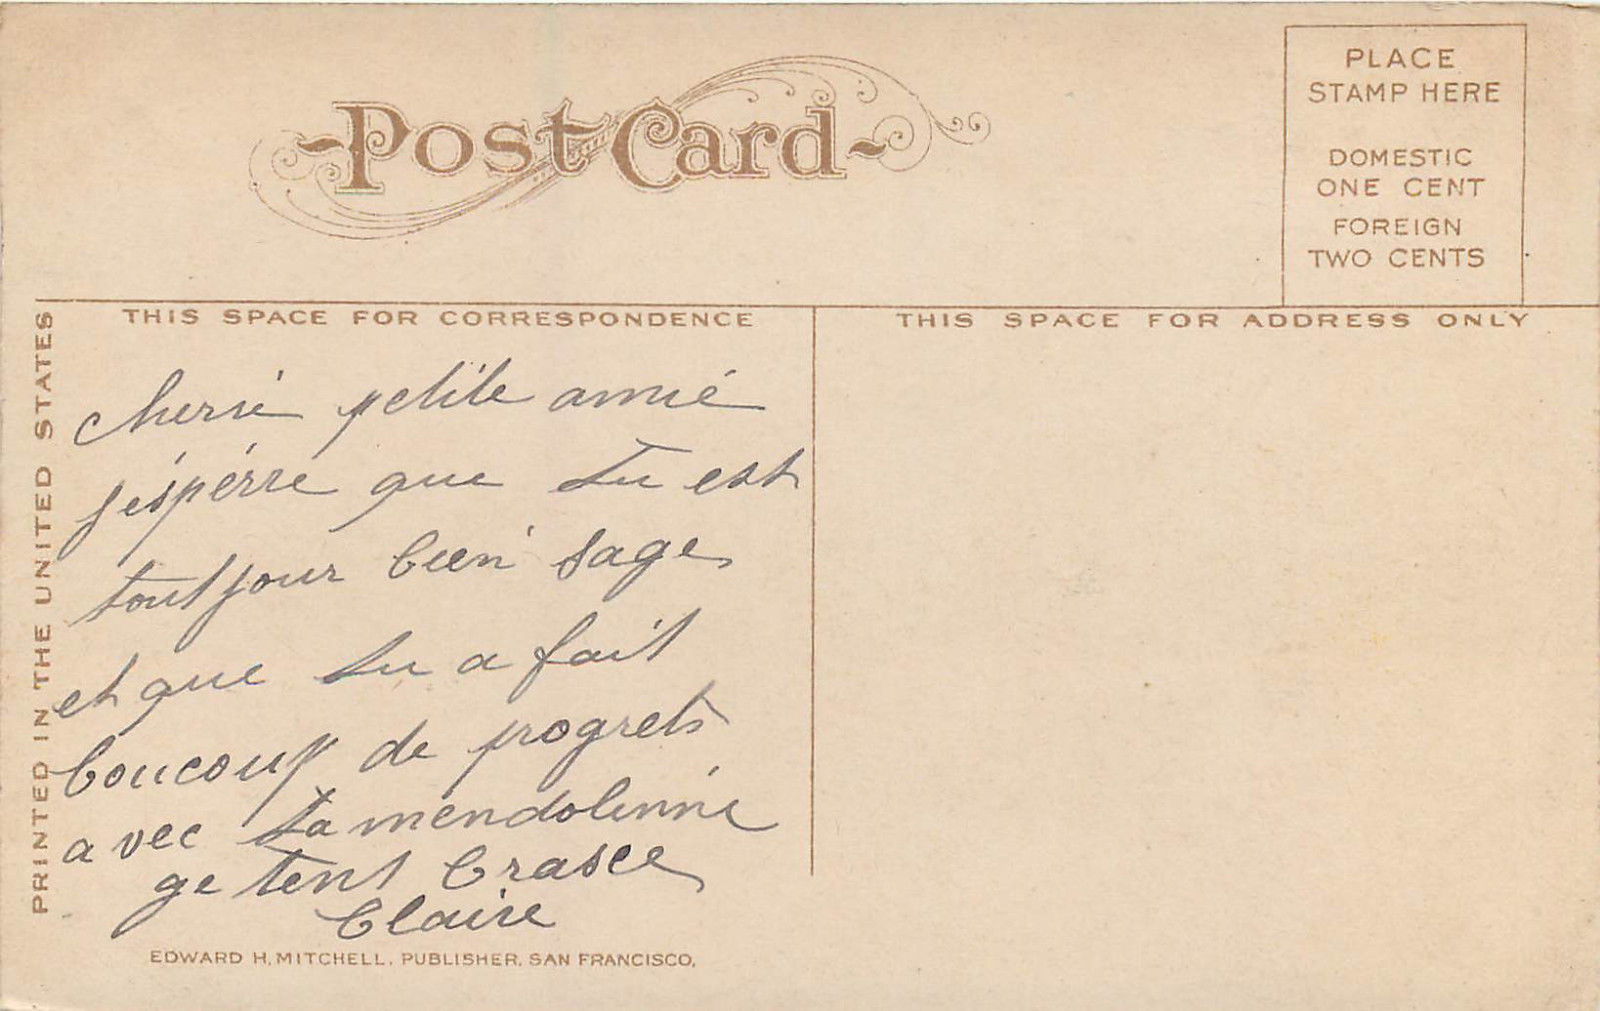 Post Card
PLACE
STAMP HERE
DOMESTIC
ONE CENT
FOREIGN
TWO CENTS
THIS SPACE FOR CORRESPONDENCE
THIS SPACE FOR ADDRESS ONLY
PRINTED IN THE UNITED STATES
cherié petite amié
jéspérre que tu est
toutjour bien sage
et que tu a fait
boucoup de progrets
avec ta mendolinné
ge tent brasce
Claire
EDWARD H. MITCHELL, PUBLISHER, SAN FRANCISCO.